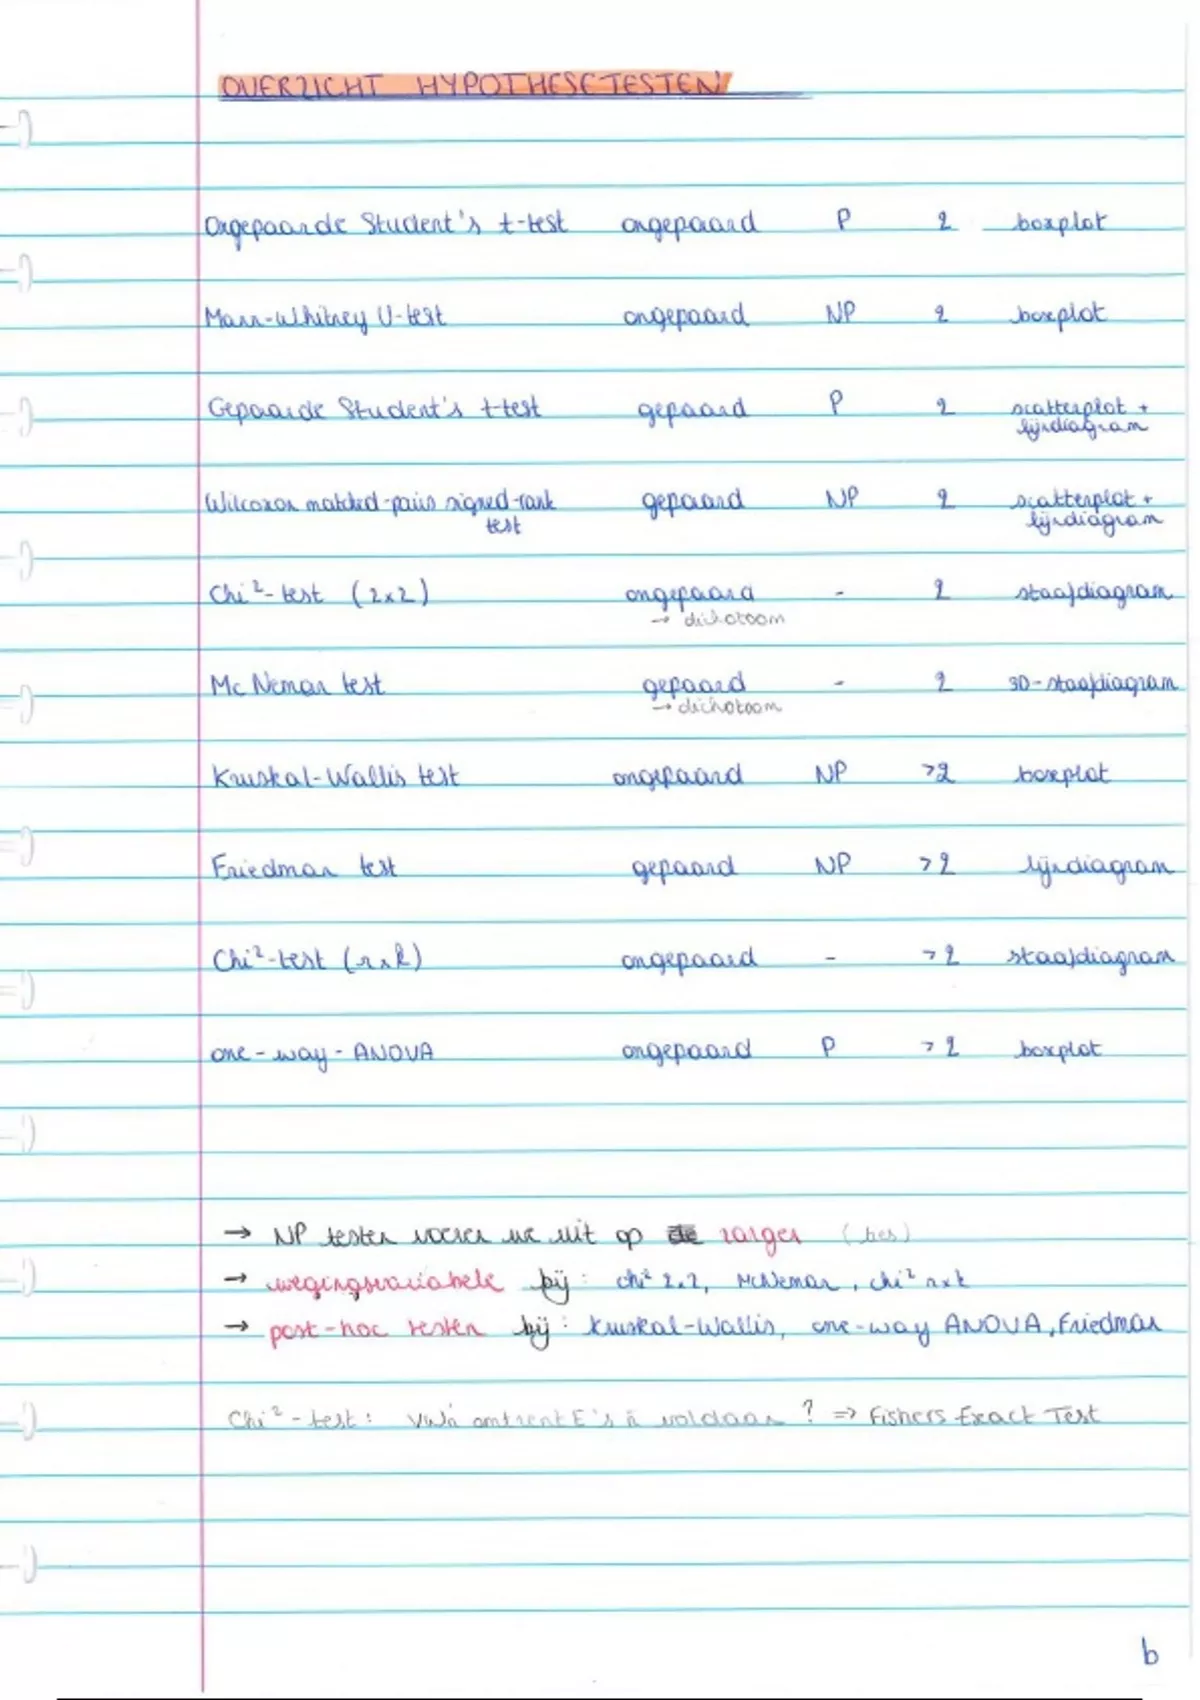 OVERZICHT HYPOTHESETESTEN
Ongepaarde Student's t-test ongepaard P 2 boxplot
Mann-Whitney U-test ongepaard NP 2 boxplot
Gepaarde Student's t-test gepaard P 2 scatterplot +
lijndiagram
Wilcoxon matched-pairs signed-rank gepaard NP 2 scatterplot +
test lijndiagram
Chi²-test (2x2) ongepaard - 2 staafdiagram
→ dichotoom
Mc Nemar test gepaard - 2 3D-staafdiagram
→ dichotoom
Kruskal-Wallis test ongepaard NP >2 boxplot
Friedman test gepaard NP >2 lijndiagram
Chi²-test (rxk) ongepaard - >2 staafdiagram
one-way-ANOVA ongepaard P >2 boxplot
→ NP testen voeren we uit op rangen
→ wegingsvariabele bij: chi² 2x2, McNemar, chi² rxk
→ post-hoc testen bij: Kruskal-Wallis, one-way ANOVA, Friedman
Chi²-test: VWn omtrent E's ñ voldaan? => Fishers Exact Test
b